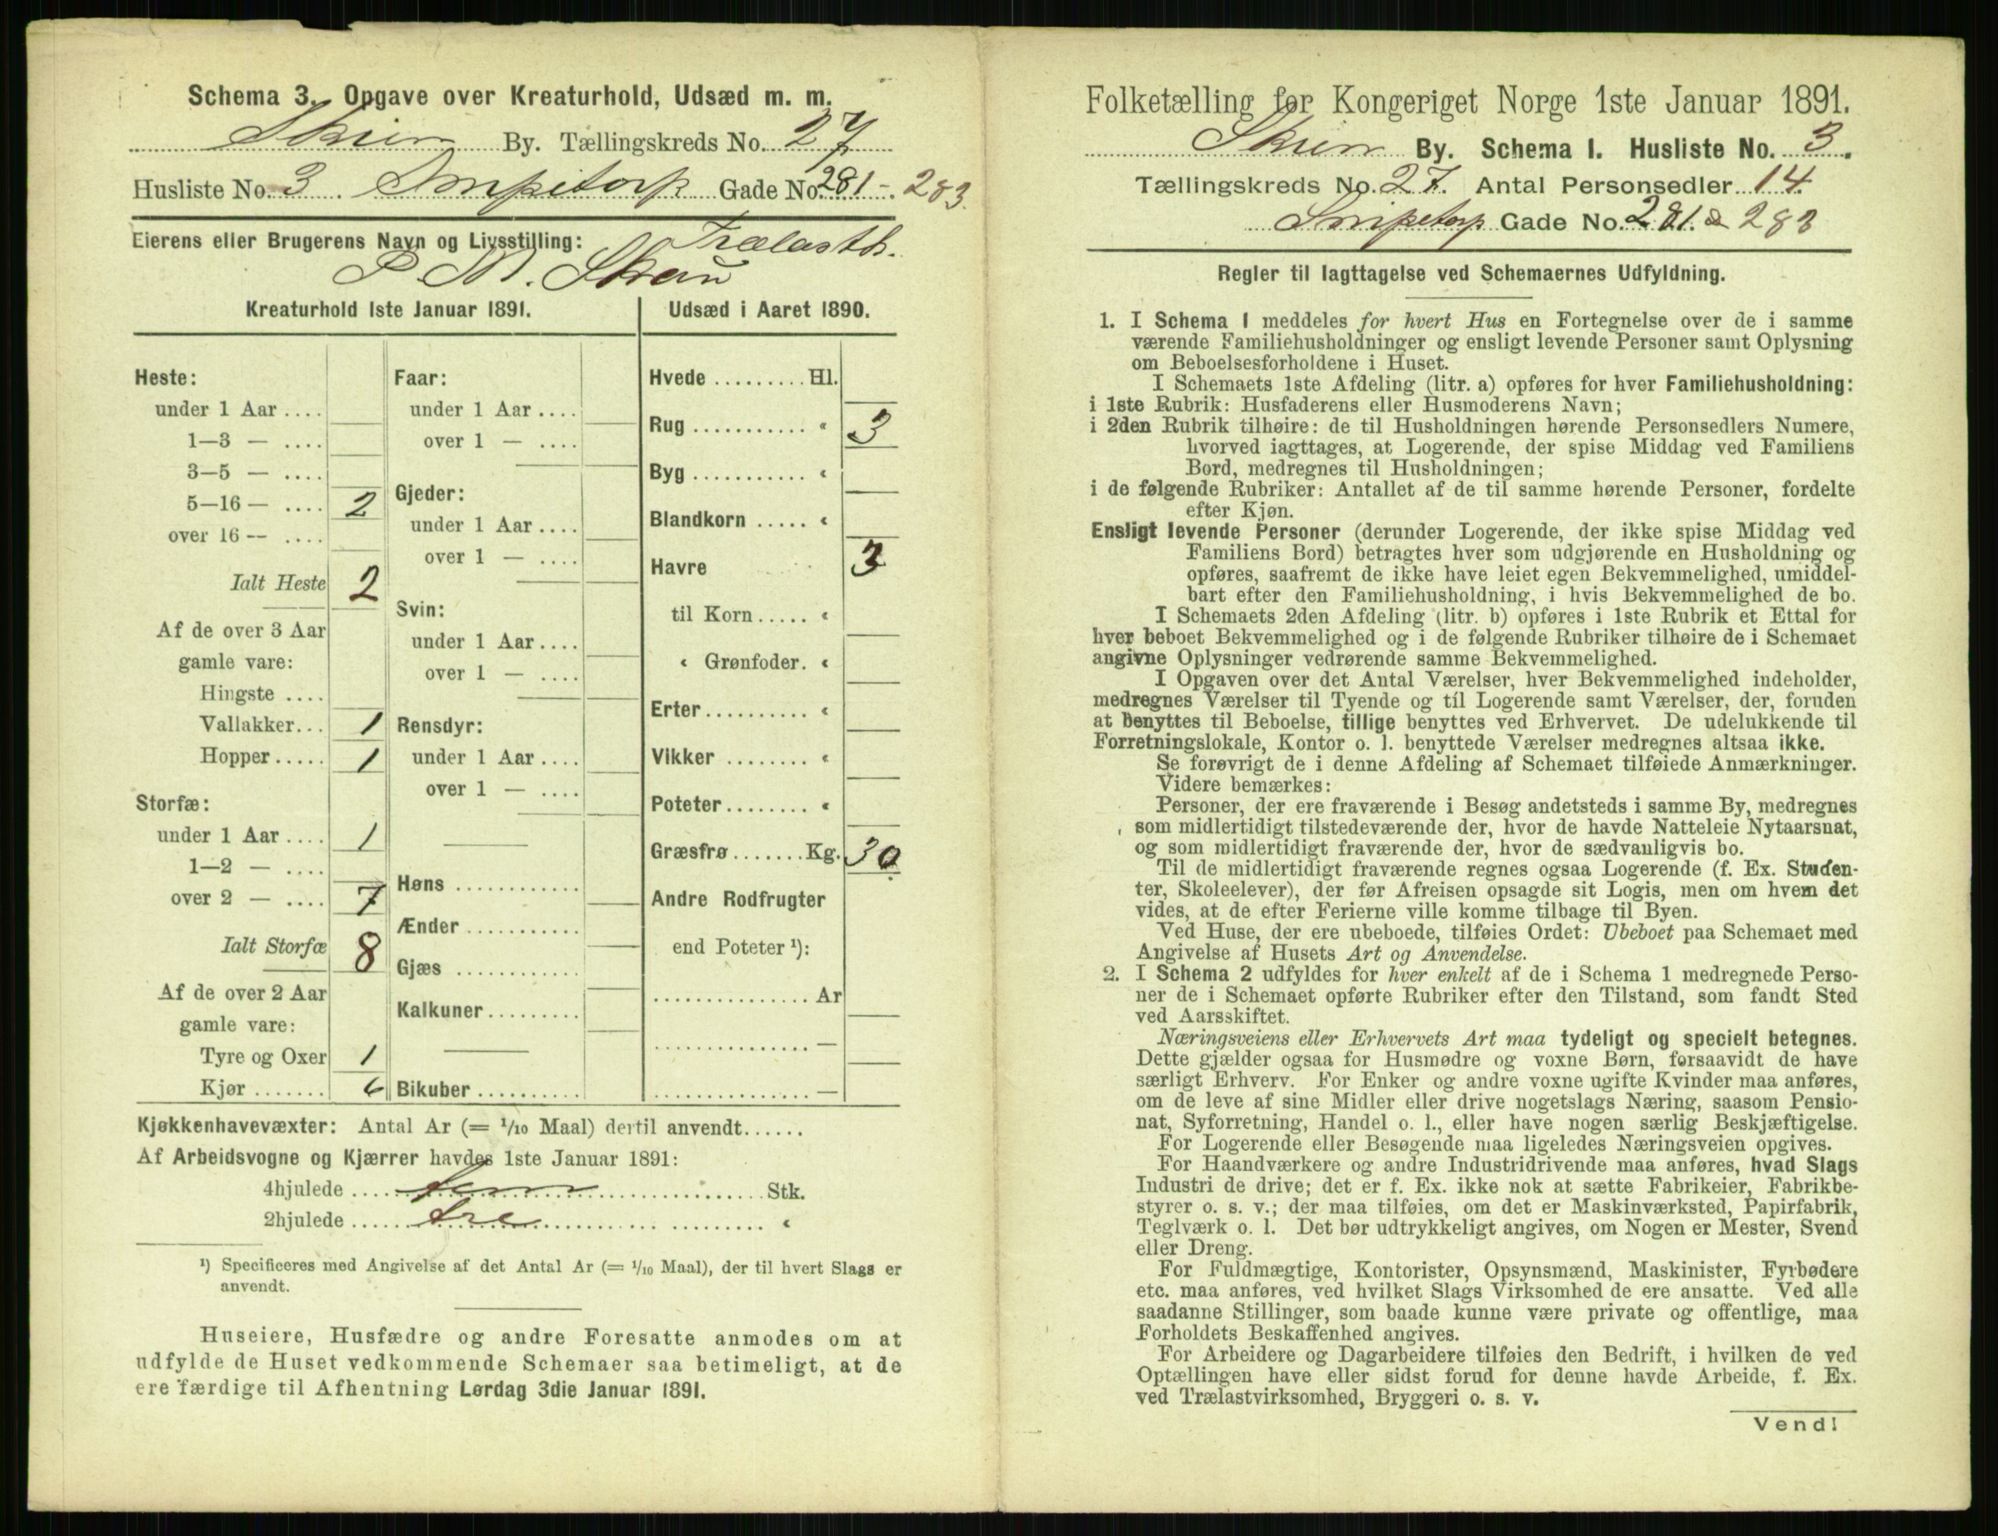 Schema 3. Opgave over Kreaturhold, Udsæd m. m.
Skien By. Tællingskreds No. 27
Husliste No. 3. Snipetorp Gade No. 281-283.
Eierens eller Brugerens Navn og Livsstilling: Trælasth.
P M. Skau
Kreaturhold 1ste Januar 1891.
Heste:
under 1 Aar ....
1—3 — ....
3—5 — ....
5—16 — .... 2
over 16 — ....
Ialt Heste 2
Af de over 3 Aar
gamle vare:
Hingste ....
Vallakker... 1
Hopper ..... 1
Storfæ:
under 1 Aar .... 1
1—2 — ....
over 2 — .... 7
Ialt Storfæ 8
Af de over 2 Aar
gamle vare:
Tyre og Oxer 1
Kjør ....... 6
Faar:
under 1 Aar ....
over 1 — ....
Gjeder:
under 1 Aar ....
over 1 — ....
Svin:
under 1 Aar ....
over 1 — ....
Rensdyr:
under 1 Aar ....
over 1 — ....
Høns ............
Ænder ...........
Gjæs ............
Kalkuner.........
Bikuber ..........
Udsæd i Aaret 1890.
Hvede ......... Hl.
Rug ........... « 3
Byg ........... «
Blandkorn ..... «
Havre 3
til Korn ..... «
« Grønfoder. «
Erter.......... «
Vikker ........ «
Poteter........ «
Græsfrø....... Kg. 30
Andre Rodfrugter
end Poteter ¹):
............... Ar
............... —
............... —
Kjøkkenhavevæxter: Antal Ar (= 1/10 Maal) dertil anvendt......
Af Arbeidsvogne og Kjærrer havdes 1ste Januar 1891:
4hjulede .... fem .................. Stk.
2hjulede .... tre .................. «
¹) Specificeres med Angivelse af det Antal Ar (= 1/10 Maal), der til hvert Slags er
anvendt.
Huseiere, Husfædre og andre Foresatte anmodes om at
udfylde de Huset vedkommende Schemaer saa betimeligt, at de
ere færdige til Afhentning Lørdag 3die Januar 1891.
Folketælling for Kongeriget Norge 1ste Januar 1891.
Skien By. Schema 1. Husliste No. 3.
Tællingskreds No. 27. Antal Personsedler 14.
Snipetorp Gade No. 281. & 283
Regler til Iagttagelse ved Schemaernes Udfyldning.
1. I Schema 1 meddeles for hvert Hus en Fortegnelse over de i samme
værende Familiehusholdninger og ensligt levende Personer samt Oplysning
om Beboelsesforholdene i Huset.
I Schemaets 1ste Afdeling (litr. a) opføres for hver Familiehusholdning:
i 1ste Rubrik: Husfaderens eller Husmoderens Navn;
i 2den Rubrik tilhøire: de til Husholdningen hørende Personsedlers Numere,
hvorved iagttages, at Logerende, der spise Middag ved Familiens
Bord, medregnes til Husholdningen;
i de følgende Rubriker: Antallet af de til samme hørende Personer, fordelte
efter Kjøn.
Ensligt levende Personer (derunder Logerende, der ikke spise Middag ved
Familiens Bord) betragtes hver som udgjørende en Husholdning og
opføres, saafremt de ikke have leiet egen Bekvemmelighed, umiddel-
bart efter den Familiehusholdning, i hvis Bekvemmelighed de bo.
I Schemaets 2den Afdeling (litr. b) opføres i 1ste Rubrik et Ettal for
hver beboet Bekvemmelighed og i de følgende Rubriker tilhøire de i Schemaet
angivne Oplysninger vedrørende samme Bekvemmelighed.
I Opgaven over det Antal Værelser, hver Bekvemmelighed indeholder,
medregnes Værelser til Tyende og til Logerende samt Værelser, der, foruden
at benyttes til Beboelse, tillige benyttes ved Erhvervet. De udelukkende til
Forretningslokale, Kontor o. l. benyttede Værelser medregnes altsaa ikke.
Se forøvrigt de i denne Afdeling af Schemaet tilføiede Anmærkninger.
Videre bemærkes:
Personer, der ere fraværende i Besøg andetsteds i samme By, medregnes
som midlertidigt tilstedeværende der, hvor de havde Natteleie Nytaarsnat,
og som midlertidigt fraværende der, hvor de sædvanligvis bo.
Til de midlertidigt fraværende regnes ogsaa Logerende (f. Ex. Studen-
ter, Skoleelever), der før Afreisen opsagde sit Logis, men om hvem det
vides, at de efter Ferierne ville komme tilbage til Byen.
Ved Huse, der ere ubeboede, tilføies Ordet: Ubeboet paa Schemaet med
Angivelse af Husets Art og Anvendelse.
2. I Schema 2 udfyldes for hver enkelt af de i Schema 1 medregnede Perso-
ner de i Schemaet opførte Rubriker efter den Tilstand, som fandt Sted
ved Aarsskiftet.
Næringsveiens eller Erhvervets Art maa tydeligt og specielt betegnes.
Dette gjælder ogsaa for Husmødre og voxne Børn, forsaavidt de have
særligt Erhverv. For Enker og andre voxne ugifte Kvinder maa anføres,
om de leve af sine Midler eller drive nogetslags Næring, saasom Pensio-
nat, Syforretning, Handel o. l., eller have nogen særlig Beskjæftigelse.
For Logerende eller Besøgende maa ligeledes Næringsveien opgives.
For Haandværkere og andre Industridrivende maa anføres, hvad Slags
Industri de drive; det er f. Ex. ikke nok at sætte Fabrikeier, Fabrikbe-
styrer o. s. v.; der maa tilføies, om det er Maskinværksted, Papirfabrik,
Teglværk o. l. Det bør udtrykkeligt angives, om Nogen er Mester, Svend
eller Dreng.
For Fuldmægtige, Kontorister, Opsynsmænd, Maskinister, Fyrbødere
etc. maa anføres, ved hvilket Slags Virksomhed de ere ansatte. Ved alle
saadanne Stillinger, som baade kunne være private og offentlige, maa
Forholdets Beskaffenhed angives.
For Arbeidere og Dagarbeidere tilføies den Bedrift, i hvilken de ved
Optællingen have eller sidst forud for denne havde Arbeide, f. Ex.
ved Trælastvirksomhed, Bryggeri o. s. v.
Vend!